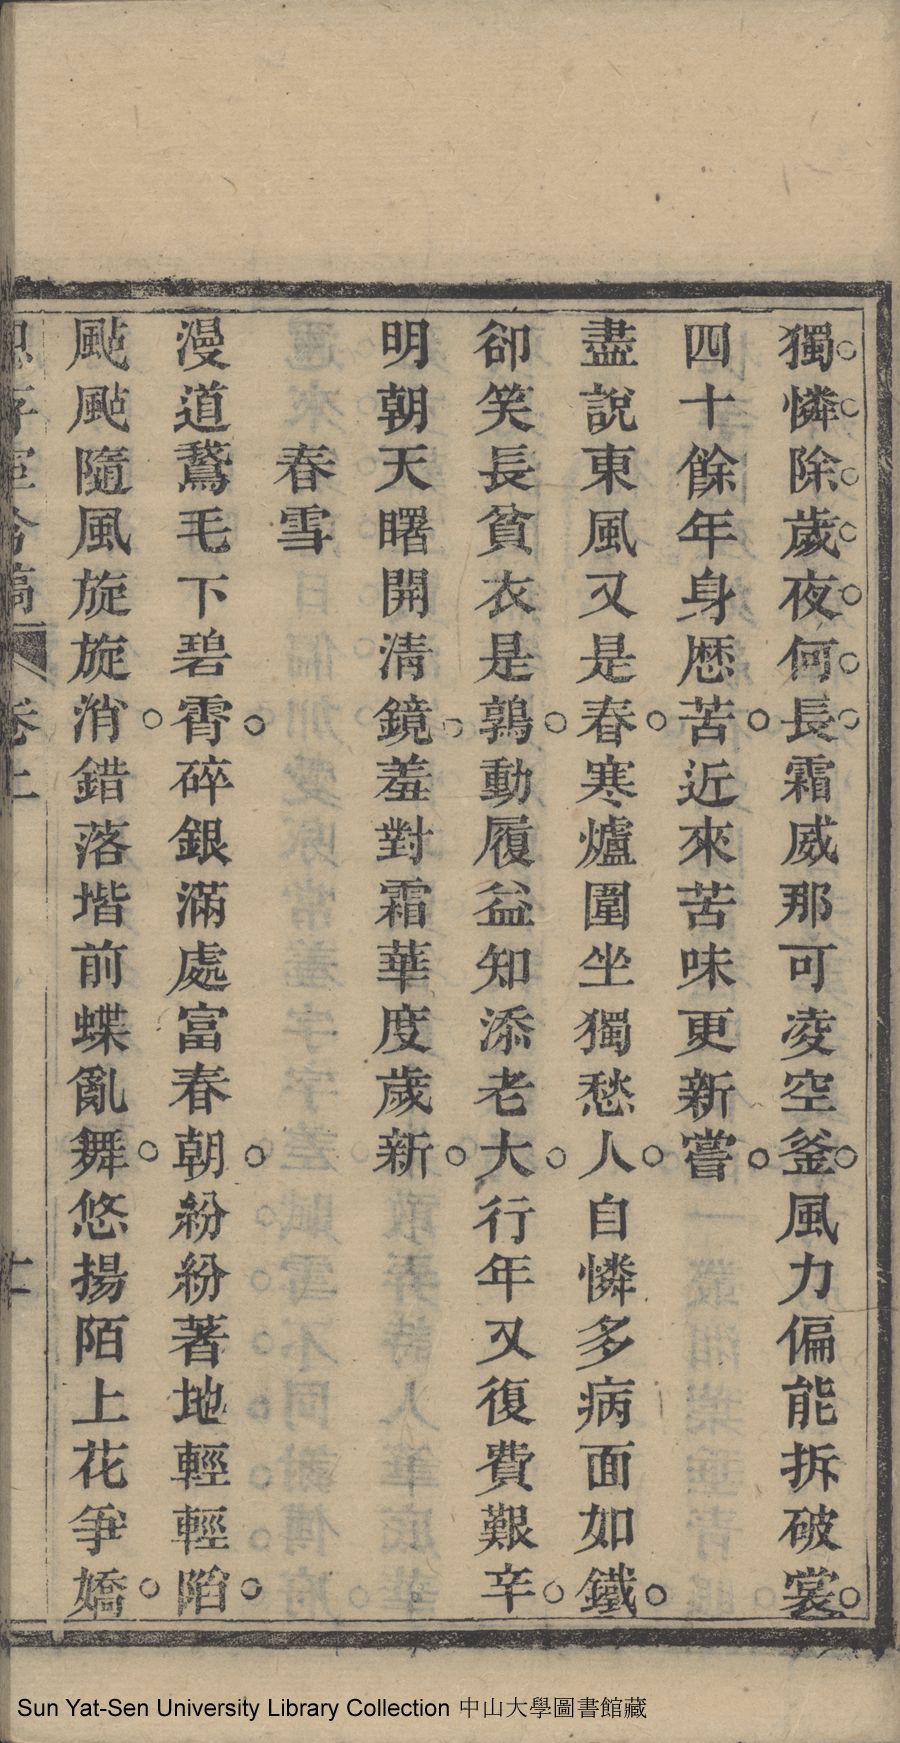 獨憐除歲夜何長霜威那可凌空釜風力偏能拆破裳
四十餘年身歷苦近來苦味更新嘗
盡說東風又是春寒爐圍坐獨愁人自憐多病面如鐵
卻笑長貧衣是鶉動履益知添老大行年又復費艱辛
明朝天曙開清鏡羞對霜華度歲新
春雪
漫道鵞毛下碧霄碎銀滿處富春朝紛紛著地輕輕陷
颭颭隨風旋旋消錯落堦前蝶亂舞悠揚陌上花爭嬌
Sun Yat-Sen University Library Collection 中山大學圖書館藏